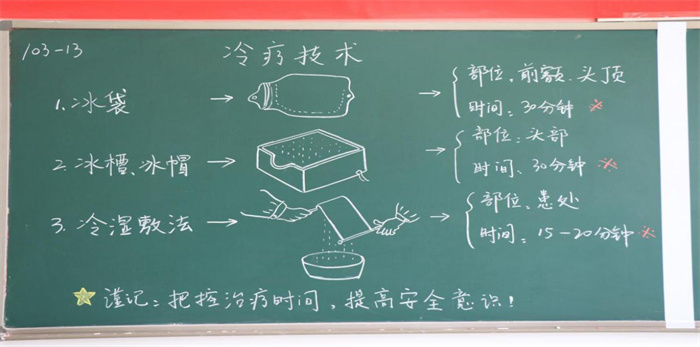 103-13
冷疗技术
1. 冰袋
部位:前额、头顶
时间:30分钟 ※
2. 冰槽、冰帽
部位:头部
时间:30分钟 ※
3. 冷湿敷法
部位:患处
时间:15-20分钟 ※
谨记:把控治疗时间,提高安全意识!